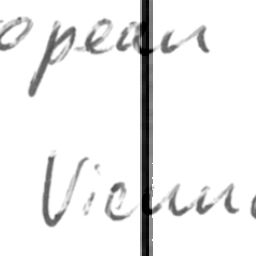 opean
Vienn